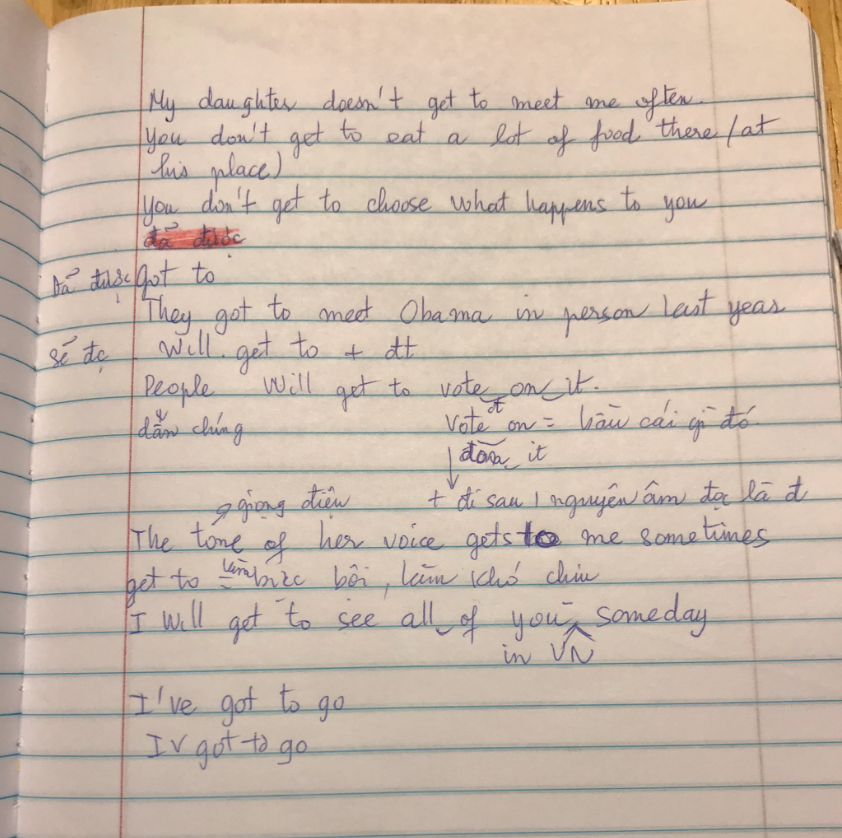 My daughter doesn't get to meet me often.
you don't get to eat a lot of food there (at
his place)
you don't get to choose what happens to you
đã được
Đã được got to
They got to meet Obama in person last year
sẽ đc will get to + đt
People will get to vote on it.
dân chúng vote on = bầu cái gì đó
đt
it
giọng điệu + đi sau 1 nguyên âm đọc là đ
The tone of her voice gets to me sometimes
get to = làm bực bội, làm khó chịu
I will get to see all of you someday
in VN
I've got to go
I v got to go